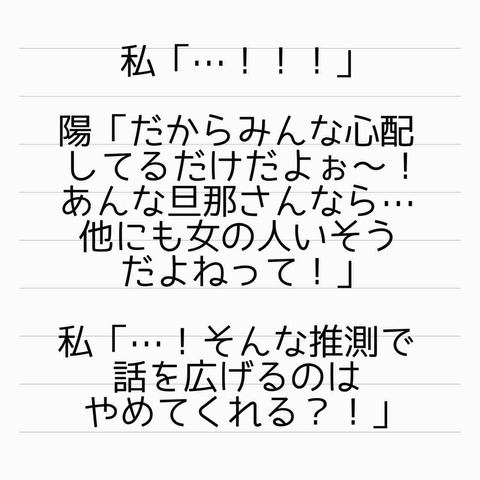 私「…！！！」
陽「だからみんな心配
してるだけだよぉ〜！
あんな旦那さんなら…
他にも女の人いそう
だよねって！」
私「…！そんな推測で
話を広げるのは
やめてくれる？！」